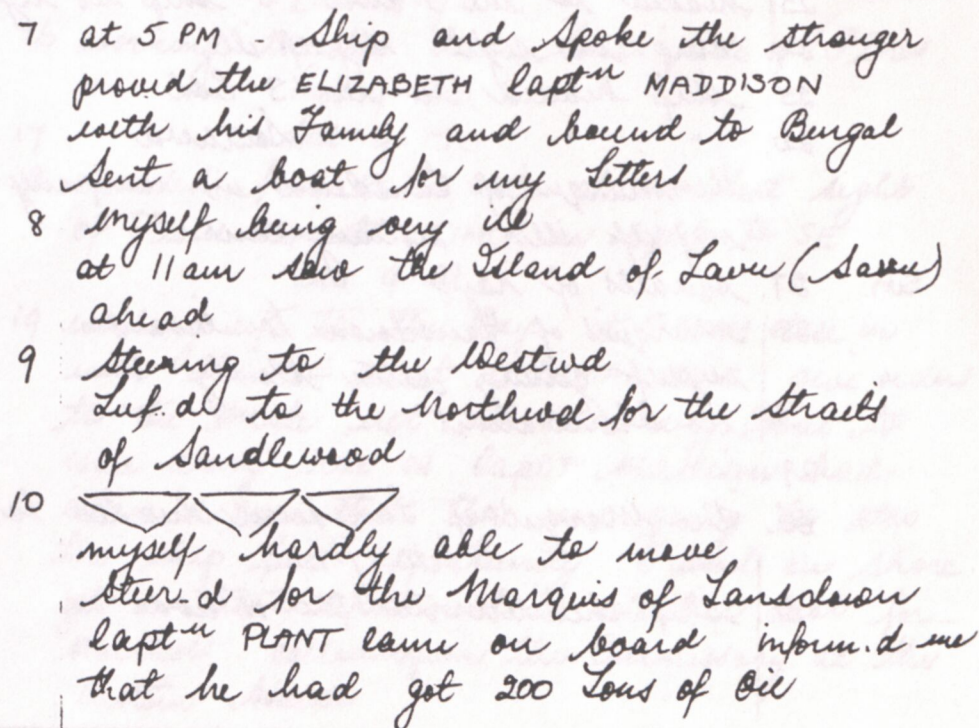 7 at 5 PM - Ship and Spoke the stranger
provd the ELIZABETH Captn MADDISON
with his Family and bound to Bengal
Sent a boat for my Letters
8 Myself being very ill
at 11 am saw the Island of Savu (Savu)
ahead
9 Steering to the Westwd
Luf.d to the Northwd for the Straits
of Sandlewood
10
myself hardly able to move
Steer.d for the Marquis of Lansdown
Captn PLANT came on board inform.d me
that he had got 200 Tons of Oil